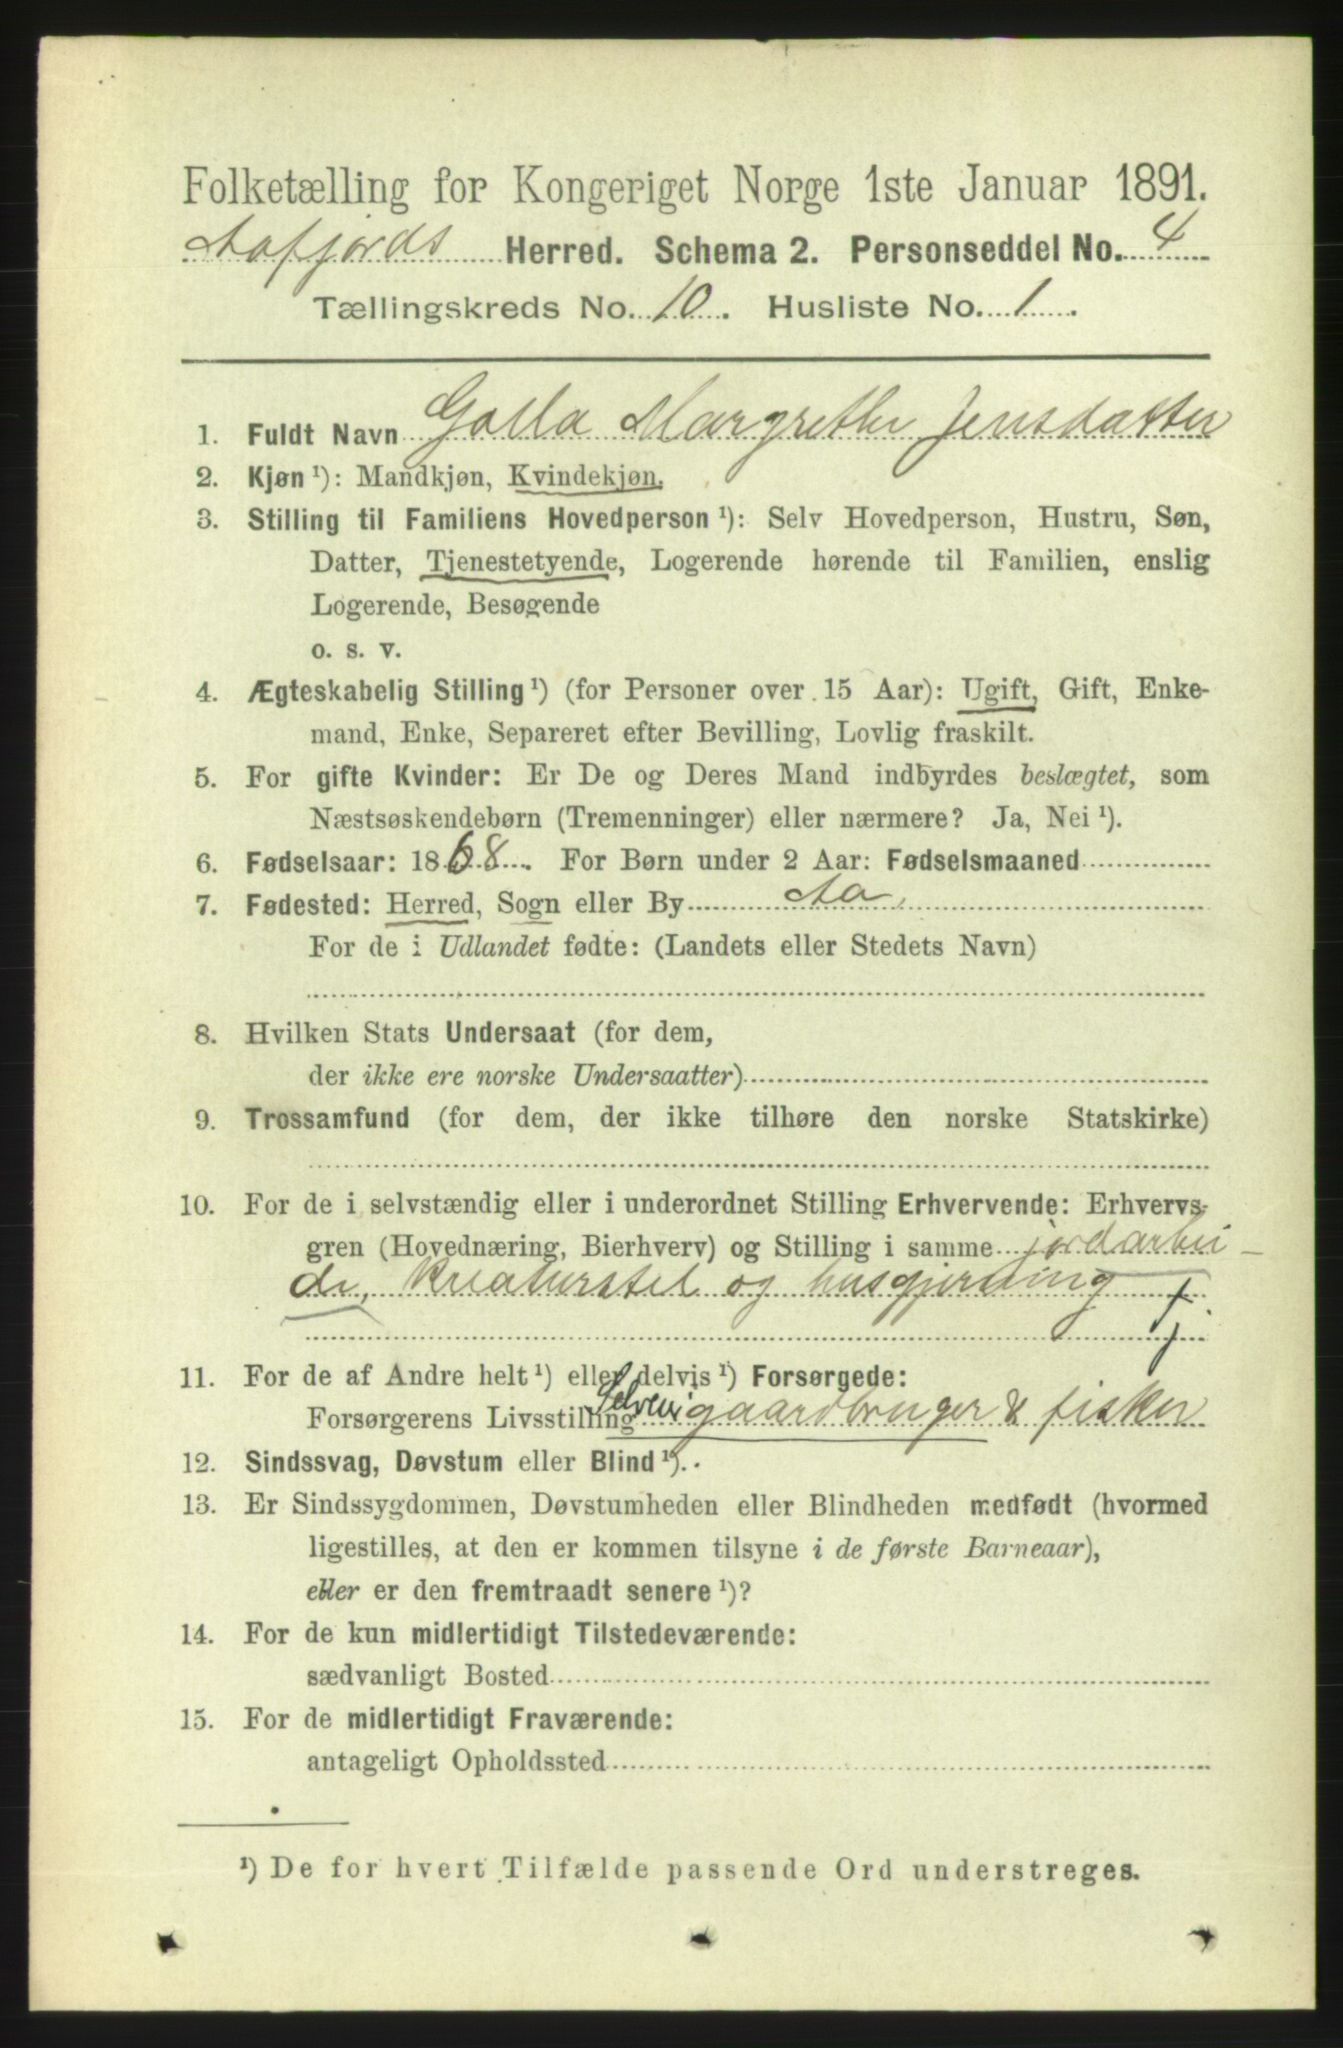 Folketælling for Kongeriget Norge 1ste Januar 1891.
Aafjords Herred. Schema 2. Personseddel No. 4
Tællingskreds No. 10. Husliste No. 1.
1. Fuldt Navn Golla Margrethe Jensdatter
2. Kjøn ¹): Mandkjøn, Kvindekjøn.
3. Stilling til Familiens Hovedperson ¹): Selv Hovedperson, Hustru, Søn,
Datter, Tjenestetyende, Logerende hørende til Familien, enslig
Logerende, Besøgende
o. s. v.
4. Ægteskabelig Stilling ¹) (for Personer over 15 Aar): Ugift, Gift, Enke-
mand, Enke, Separeret efter Bevilling, Lovlig fraskilt.
5. For gifte Kvinder: Er De og Deres Mand indbyrdes beslægtet, som
Næstsøskendebørn (Tremenninger) eller nærmere? Ja, Nei ¹).
6. Fødselsaar: 1868. For Børn under 2 Aar: Fødselsmaaned
7. Fødested: Herred, Sogn eller By Aa
For de i Udlandet fødte: (Landets eller Stedets Navn)
8. Hvilken Stats Undersaat (for dem,
der ikke ere norske Undersaatter)
9. Trossamfund (for dem, der ikke tilhøre den norske Statskirke)
10. For de i selvstændig eller i underordnet Stilling Erhvervende: Erhvervs-
gren (Hovednæring, Bierhverv) og Stilling i samme jordarbei-
de, kreaturstel og husgjerning
tj.
11. For de af Andre helt ¹) eller delvis ¹) Forsørgede:
Forsørgerens Livsstilling Selvei gaardbruger & fisker
12. Sindssvag, Døvstum eller Blind ¹).
13. Er Sindssygdommen, Døvstumheden eller Blindheden medfødt (hvormed
ligestilles, at den er kommen tilsyne i de første Barneaar),
eller er den fremtraadt senere ¹)?
14. For de kun midlertidigt Tilstedeværende:
sædvanligt Bosted
15. For de midlertidigt Fraværende:
antageligt Opholdssted
¹) De for hvert Tilfælde passende Ord understreges.